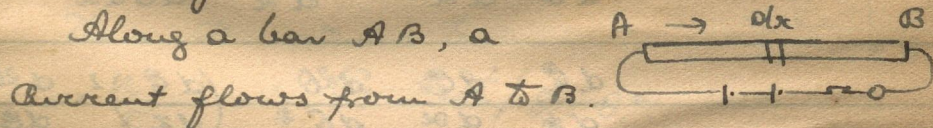 Along a bar AB, a
current flows from A to B.
A → dx B